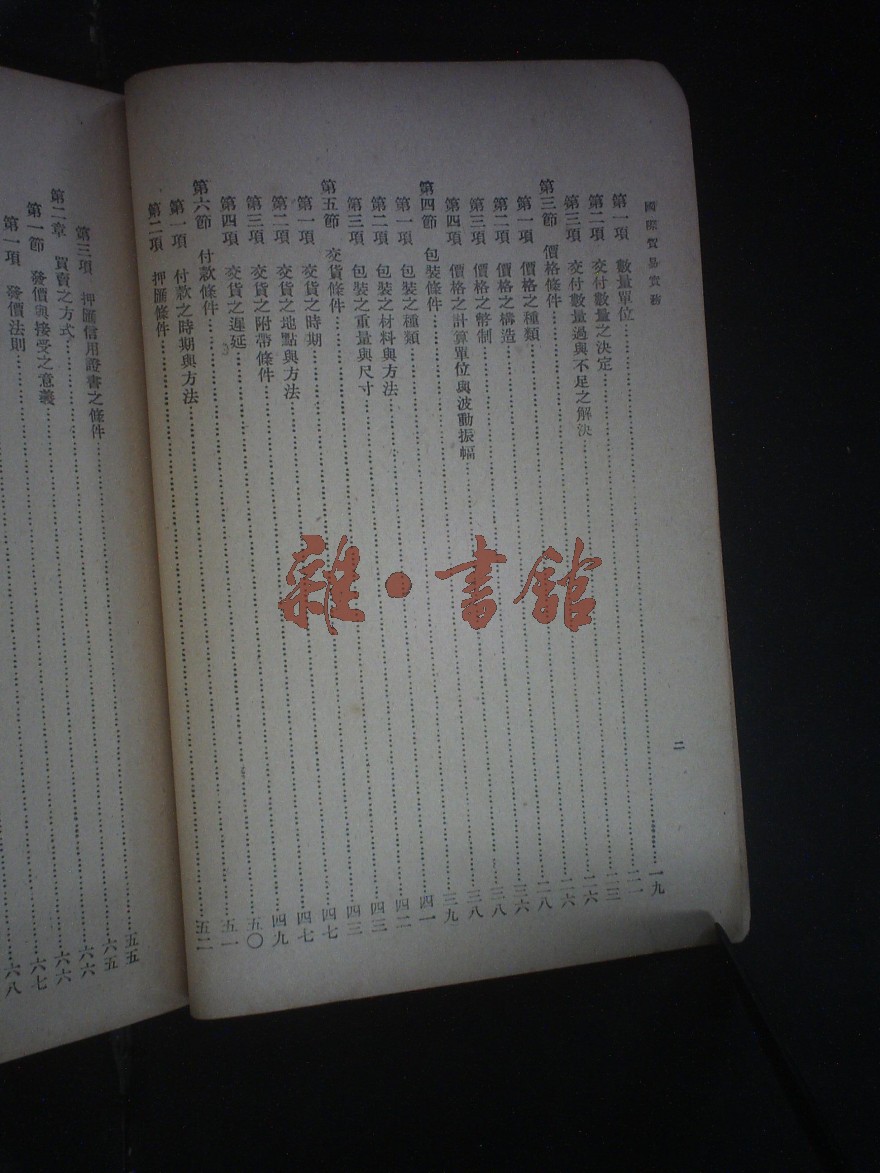 國際貿易實務
二
第一項 數量單位……一九
第二項 交付數量之決定……二一
第三項 交付數量過與不足之解決……二三
第三節 價格條件……二六
第一項 價格之種類……二六
第二項 價格之構造……二八
第三項 價格之幣制……三六
第四項 價格之計算單位與波動振幅……三八
第四節 包裝條件……三八
第一項 包裝之種類……三九
第二項 包裝之材料與方法……四一
第三項 包裝之重量與尺寸……四二
第五節 交貨條件……四三
第一項 交貨之時期……四三
第二項 交貨之地點與方法……四七
第三項 交貨之附帶條件……四七
第四項 交貨之遲延……四九
第六節 付款條件……五〇
第一項 付款之時期與方法……五一
第二項 押匯條件……五二
第三項 押匯信用證書之條件……五五
第二章 買賣之方式……六五
第一節 發價與接受之意義……六六
第一項 發價法則……六六
六七
六八
雜·書館